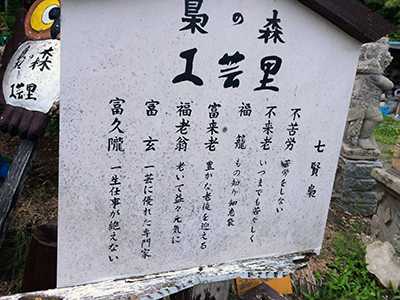 梟の森
工芸里
七賢梟
不苦労 苦労をしない
不来老 いつまでも若々しく
福籠 もの知り知恵袋
富来老 豊かな老後を迎える
福老翁 老いて益々元気に
富玄 一芸に優れた専門家
富久隴 一生仕事が絶えない
森
工芸里